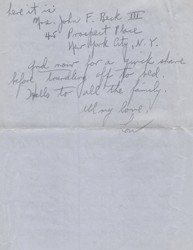 here it is
Mrs. John F. Beck III
45 Prospect Place
New York City, N.Y.
And now for a quick shave
before trundling off to bed.
Hello to all the family.
All my love,